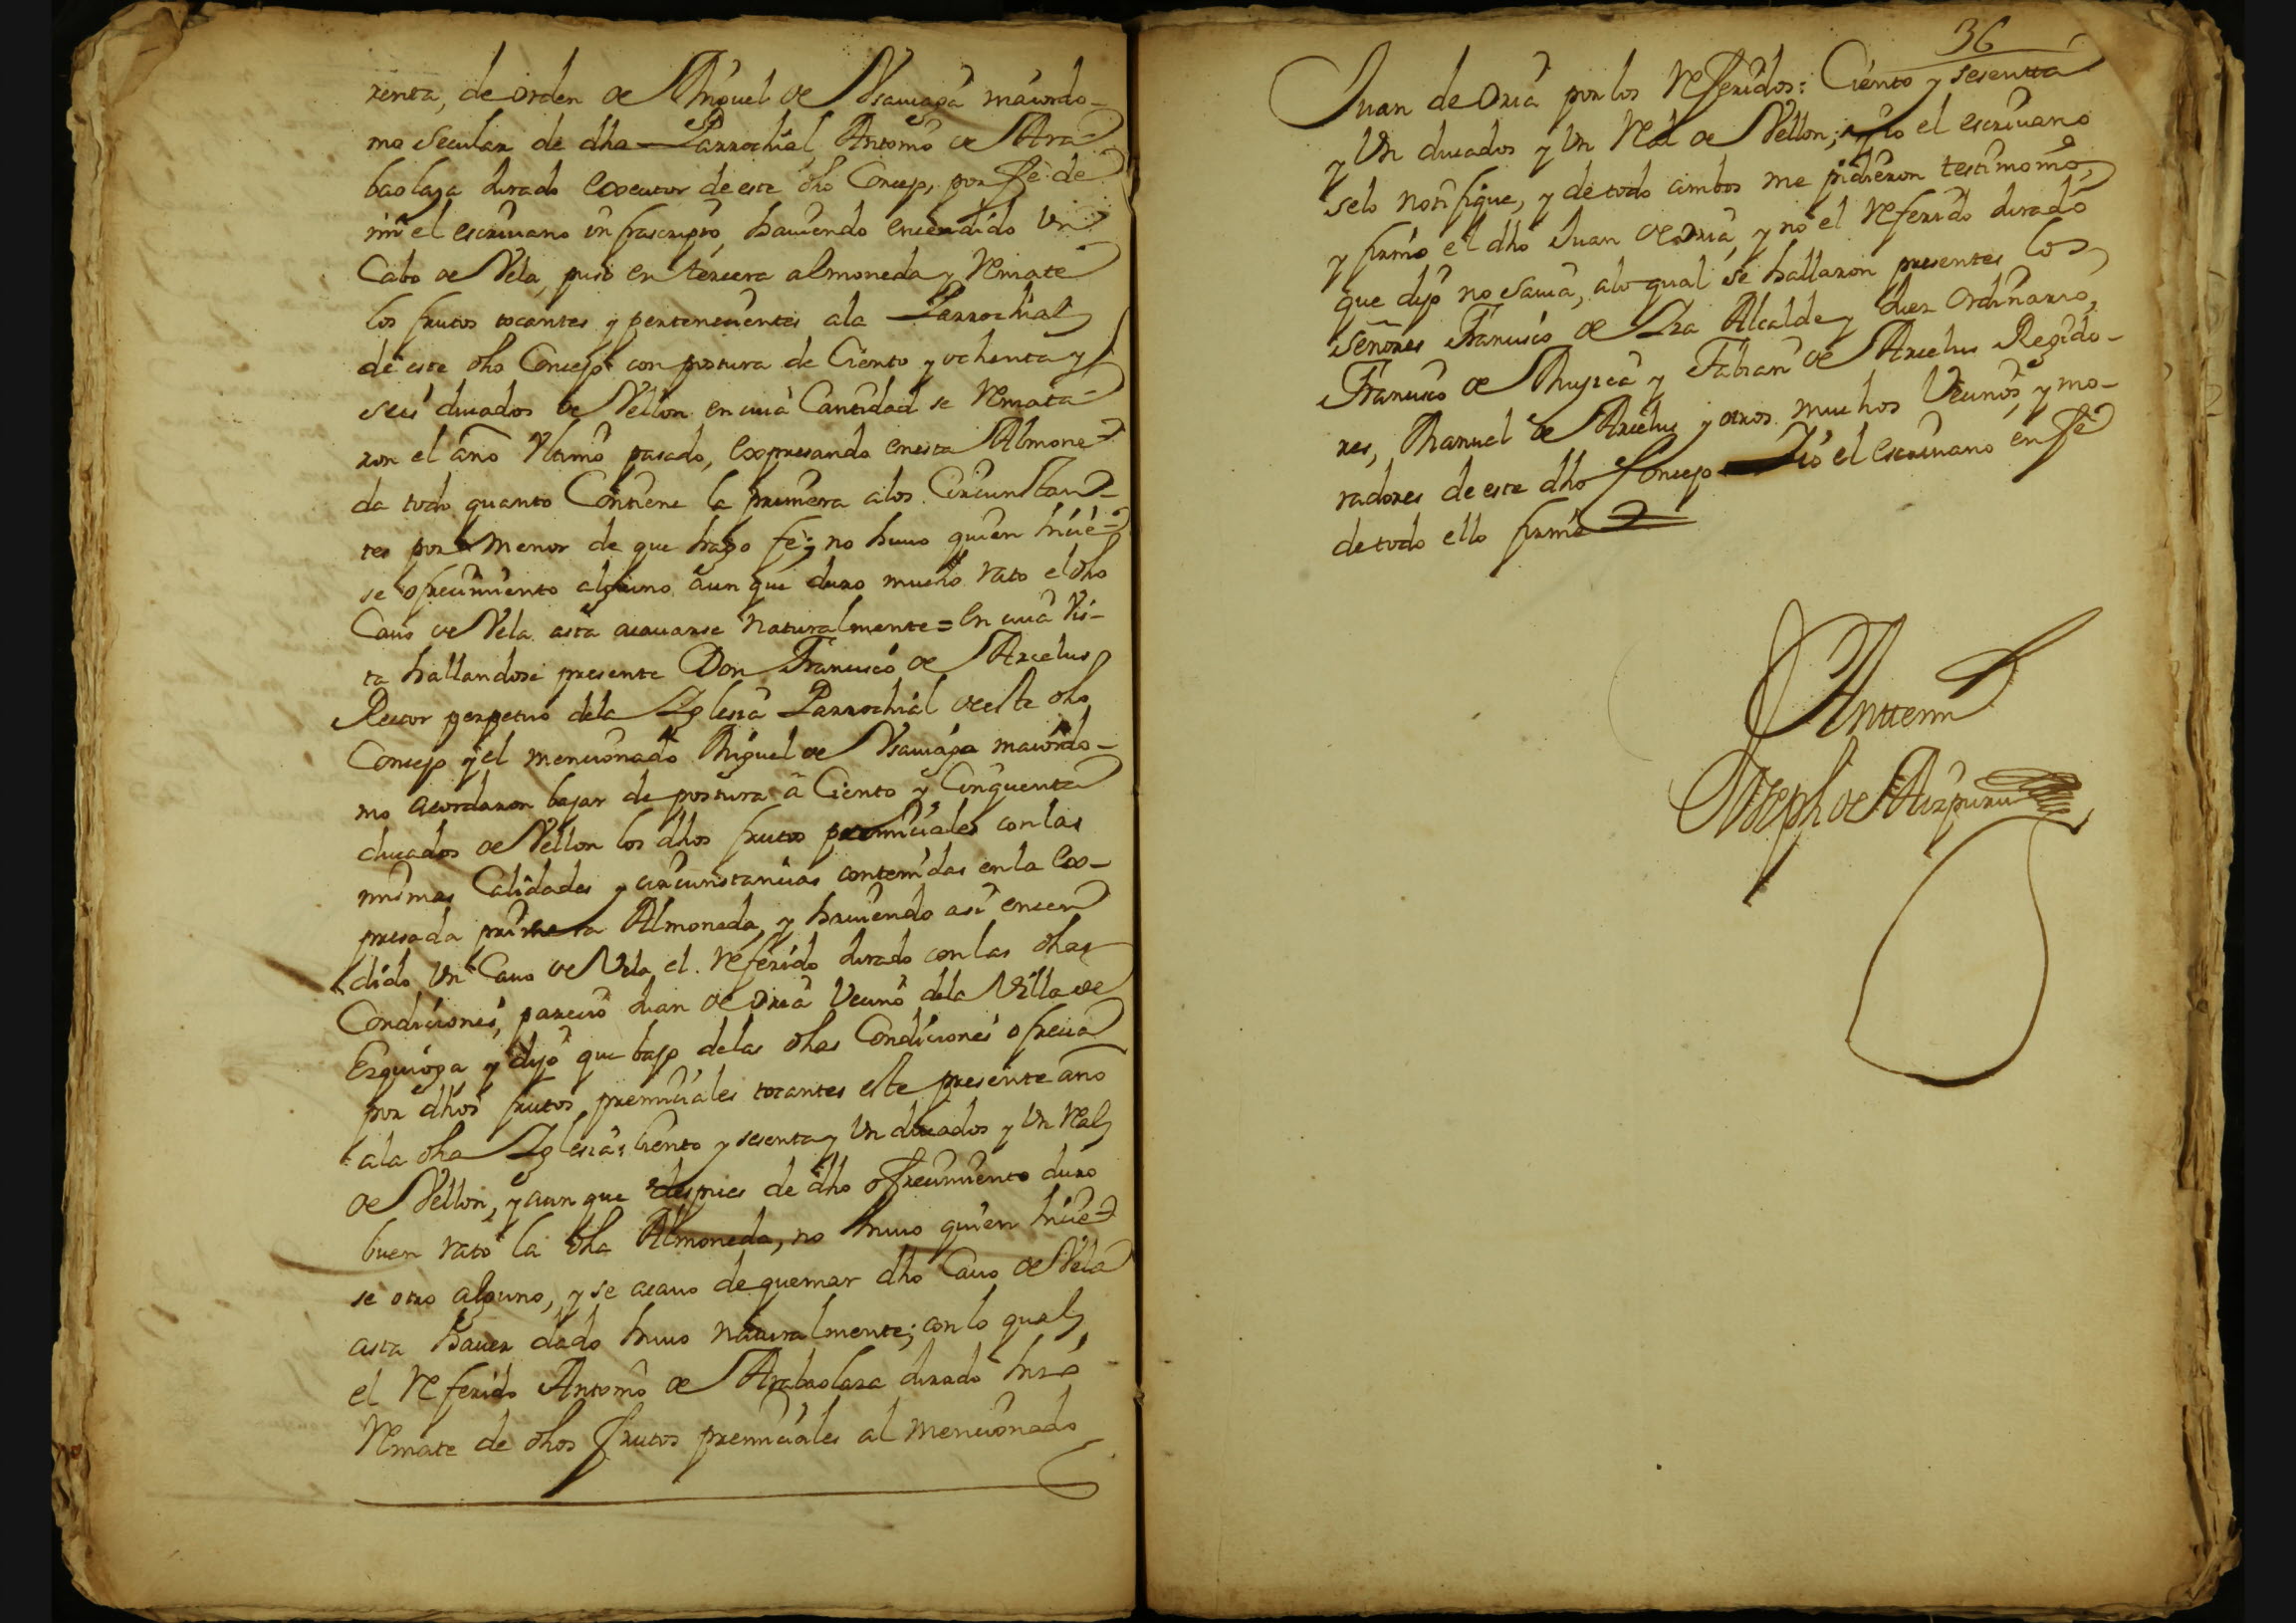 renta, de orden de Miguel de Vsauiaga maiordo-
mo Secular de dha Parrochial, Antonio de Ara-
baolaza Jurado Executor de este dho Concejo, por fe de
mi el escriuano infrascripto, hauiendo encendido vn
Cabo de Vela, puso en tercera almoneda y Remate
los frutos tocantes y pertenecientes ala Parrochial
de este dho Concejo con postura de Ciento y ochenta y
seis ducados de Vellon en cuia Cantidad se Remata-
ron el año vltimo pasado, expresando en esta Almone-
da todo quanto Contiene la primera alos Circunstan-
tes por menor de que hago fe; y no huuo quien hicie-
se ofrecimiento alguno aun que duro mucho rato el dho
Cauo de Vela asta acauarse naturalmente = En cuia vis-
ta hallandose presente Don Francisco de Arcelus
Rector perpetuo dela Iglesia Parrochial de este dho
Concejo y el mencionado Miguel de Vsauiaga maiordo-
mo acordaron bajar de postura â Ciento y Cinquenta
ducados de Vellon los dhos frutos premiciales con las
mismas Calidades y circunstancias contenidas en la Ex-
presada primera Almoneda, y hauiendo asi encen
dido vn Cauo de Vela el referido Jurado con las dhas
Condiciones, parecio Juan de Oria Vecino dela Villa de
Ezquioga y dijo que bajo delas dhas Condiciones ofrecia
por dhos frutos premiciales tocantes este presente año
ala dha Iglesia: Ciento y sesenta y vn ducados y vn Real
de Vellon, y aun que despues de dho ofrecimiento duro
buen rato la dha Almoneda, no huuo quien hicie-
se otro alguno, y se acauo de quemar dho Cauo de Vela
asta hauer dado humo naturalmente; con lo qual
el Referido Antonio de Arabaolaza Jurado hizo
Remate de dhos frutos premiciales al mencionado
36
Juan de Oria por los Referidos: Ciento y sesentta
y vn ducados y vn Real de Vellon; y io el escriuano
selo notifique, y de todo ambos me pidieron testimonio,
y firmó el dho Juan de Oria, y no el referido Jurado
que dijo no sauia, alo qual se hallaron presentes los
Señores Francisco de Alcalde y Juez Ordinario,
Francisco de y Fabian de Arcelus Regido-
res, Manuel de Arcelus y otros muchos Vecinos, y mo-
radores de este dho Concejo Io el escriuano en fe
de todo ello firmé
Anttemi
Joseph de Aizpuru